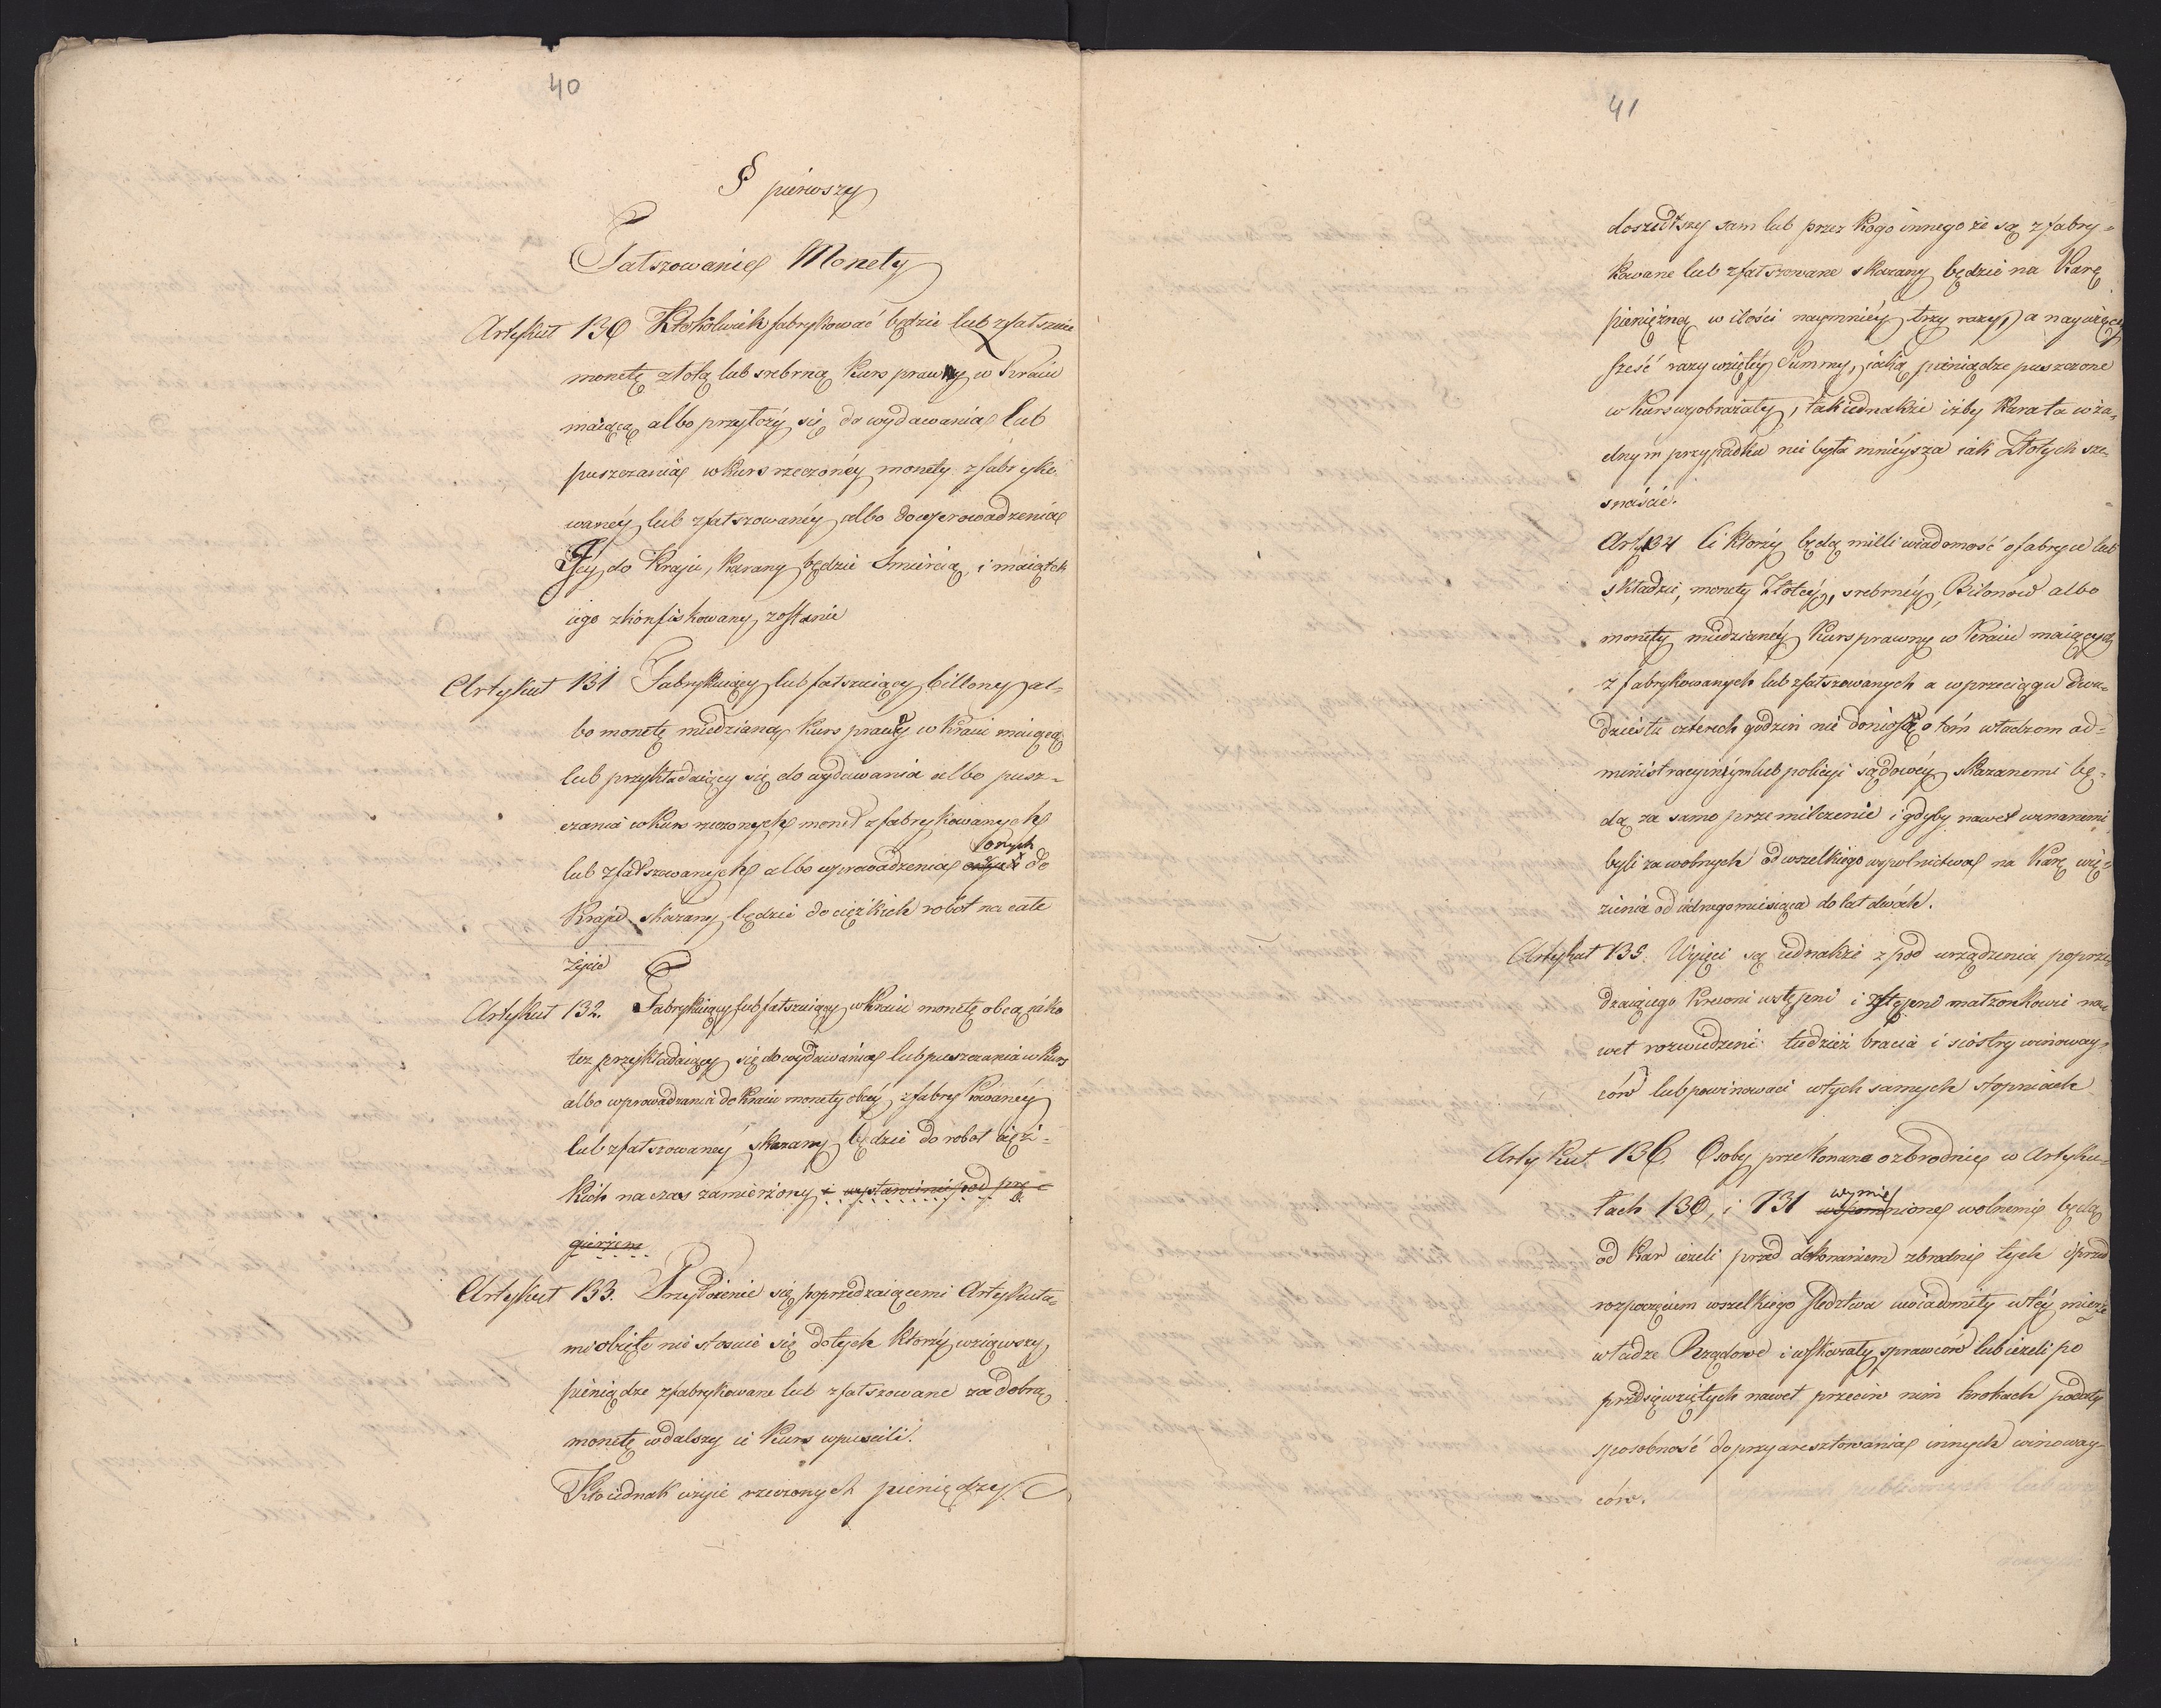 40
§ pierwszy
Fałszowanie Monety
Artykuł 130 Ktokolwiek fabrykować będzie lub zfałszuie
monetę złotą lub srebrną kurs prawny w Kraiu
maiącą albo przyłoży się do wydawania lub
puszczania w kurs rzeczonéy monety zfabryko-
wanéy lub zfałszowanéy albo do wprowadzenia
Jéy do Kraju, karany będzie Smiercią, i maiątek
iego zkonfiskowany zostanie
Artykuł 131 Fabrykuiący lub fałszuiący billony al-
bo monetę miedzianą kurs prawny w kraiu maiącą
lub przykładaiący się do wydawania albo pusz-
czania w kurs rzeczonych monet zfabrykowanych
lub zfałszowanych albo wprowadzenia onych do
Kraju skazany będzie do ciężkich robót na całe
życie
Artykuł 132. Fabrykuiący lub fałszuiący w Kraiu monetę obcą jako
też przykładaiący się do wydawania lub puszczania w kurs
albo wprowadzania do Kraiu monety obcéy zfabrykowanéy
lub zfałszowanéy skazany będzie do robot cięż-
kich na czas zamierzony i wystawienie pod prę-
gierzem
Artykuł 133. Przyłożenie się poprzedzaiącemi Artykuła-
mi obięte nie stosuie się do tych którzy wziąwszy
pieniądze zfabrykowane lub zfałszowane za dobrą
monetę w dalszy ie kurs wpuścili.
Kto iednak użyie rzeczonych pieniędzy
41
doszedłszy sam lub przez kogo innego że są zfabry-
kowane lub zfałszowane skazany będzie na karę
pieniężną w ilości naymniéy trzy razy, a naywięcéy
sześć razy wziętéy Summy, iaką pieniądze puszczone
w kurs wyobrażały, tak iednakże iżby kara ta w ża-
dnym przypadku nie była mnieysza iak Złotych sze-
snaście.
Art 134 Ci którzy będą mieli wiadomość o fabryce lub
składzie, monety Złotéy, srebrnéy, Bilonów albo
monety miedzianéy kurs prawny w Kraiu maiących
zfabrykowanych lub zfałszowanych a w przeciągu dwu-
dziestu czterech godzin nie doniosą o tém władzom ad-
ministracyinym lub policyi sądowéy skazanemi bę-
dą za samo przemilczenie i gdyby nawet uznanemi
byli za wolnych od wszelkiego wspolnictwa na karę wię-
zienia od iednego miesiąca do lat dwóch.
Artykuł 135. Wyięci są iednakże z pod urządzenia poprze-
dzaiącego Krewni wstępni i zstępni małżonkowie na-
wet rozwiedzeni tudzież bracia i siostry winoway-
ców lub powinowaci w tych samych stopniach
Artykuł 136. Osoby przekonane o zbrodnie w Artyku-
łach 130, i 131 wymienione wolnemi będą
od kar ieżeli przed dokonaniem zbrodni tych i przed
rozpoczęciem wszelkiego śledztwa uwiadomiły w téy mierze
władze Rządowe i wskazały sprawców lub ieżeli po
przedsięwziętych nawet przeciw nim krokach podały
sposobność do przyaresztowania innych winoway-
ców.